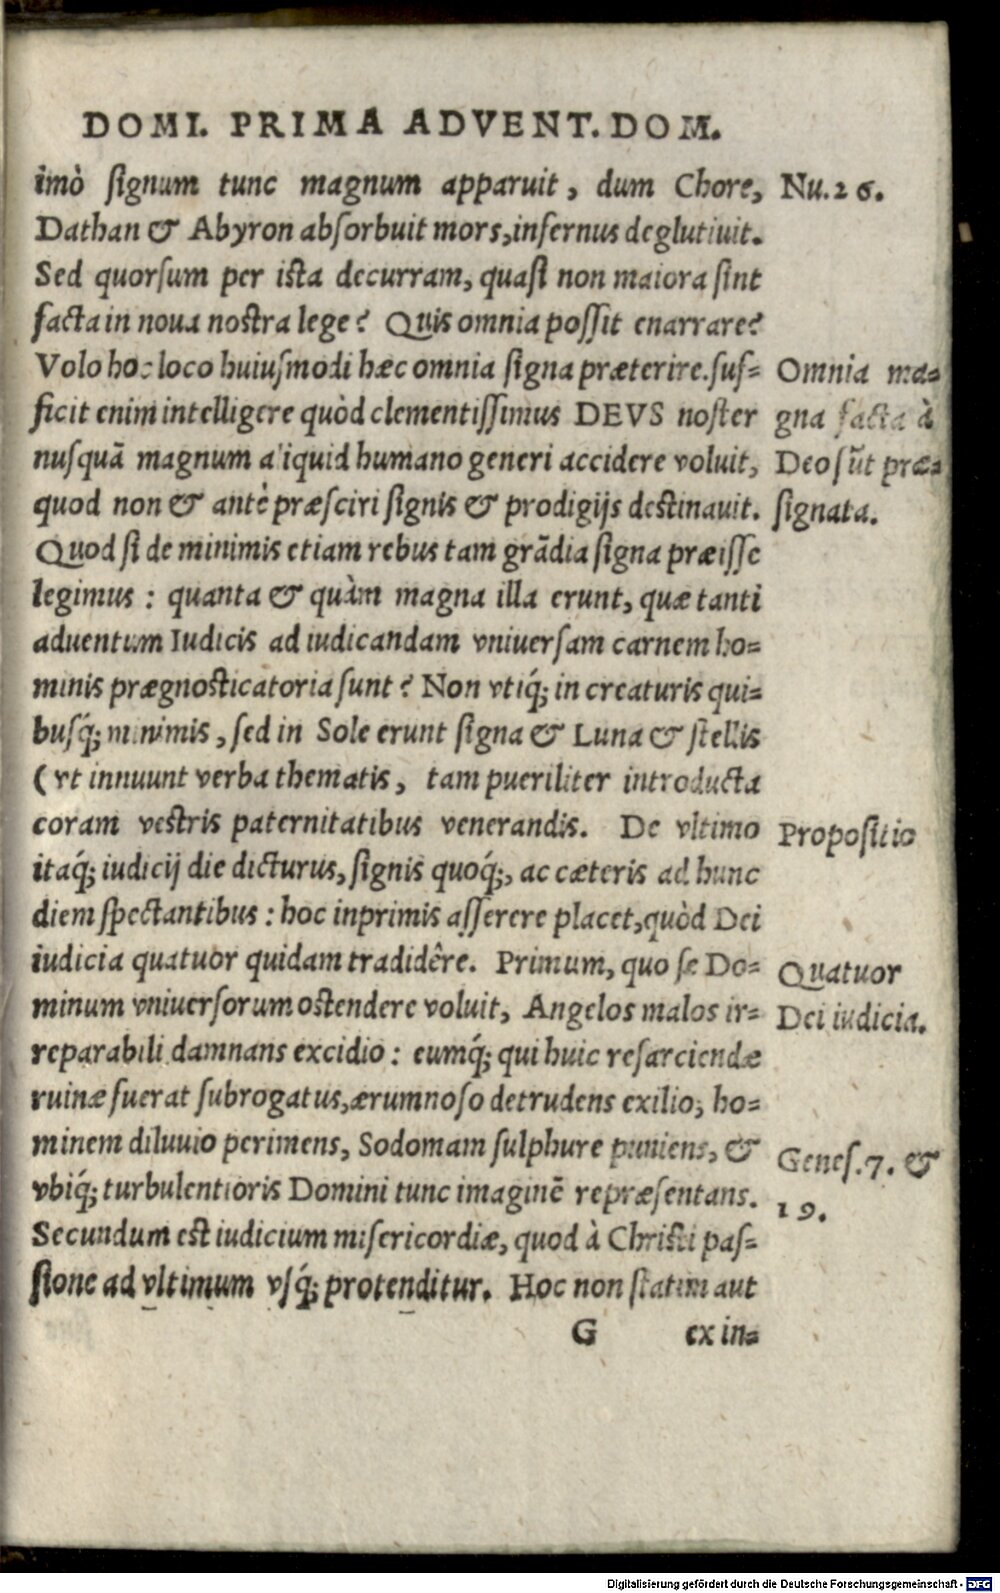 DOMI. PRIMA ADVENT. DOM.
imò signum tunc magnum apparuit, dum Chore,
Nu.26.
Dathan & Abyron absorbuit mors, infernus deglutiuit.
Sed quorsum per ista decurram, quasi non maiora sint
facta in noua nostra lege? Quis omnia possit enarrare?
Volo hoc loco huiusmodi hæc omnia signa præterire. suf-
ficit enim intelligere quòd clementissimus DEVS noster
nusquã magnum aliquid humano generi accidere voluit,
quod non & antè præsciri signis & prodigijs destinauit.
Omnia ma-
gna facta à
Deo sũt præ-
signata.
Quod si de minimis etiam rebus tam grãdia signa præisse
legimus: quanta & quàm magna illa erunt, quæ tanti
aduentum Iudicis ad iudicandam vniuersam carnem ho-
minis prægnosticatoria sunt? Non vtiq́; in creaturis qui-
busq́; minimis, sed in Sole erunt signa & Luna & stellis
(vt innuunt verba thematis, tam pueriliter introducta
coram vestris paternitatibus venerandis. De vltimo
Propositio
itaq́; iudicij die dicturus, signis quoq́;, ac cæteris ad hunc
diem spectantibus: hoc inprimis asserere placet, quòd Dei
iudicia quatuor quidam tradidêre. Primum, quo se Do-
minum vniuersorum ostendere voluit, Angelos malos ir-
Quatuor
Dei iudicia.
reparabili damnans excidio: eumq́; qui huic resarciendæ
ruinæ fuerat subrogatus, ærumnoso detrudens exilio; ho-
minem diluuio perimens, Sodomam sulphure puniens, &
vbiq́; turbulentioris Domini tunc imaginē repræsentans.
Genes.7. &
19.
Secundum est iudicium misericordiæ, quod à Christi pas-
sione ad vltimum vsq́; protenditur. Hoc non statim aut
G ex in-
Digitalisierung gefördert durch die Deutsche Forschungsgemeinschaft - DFG